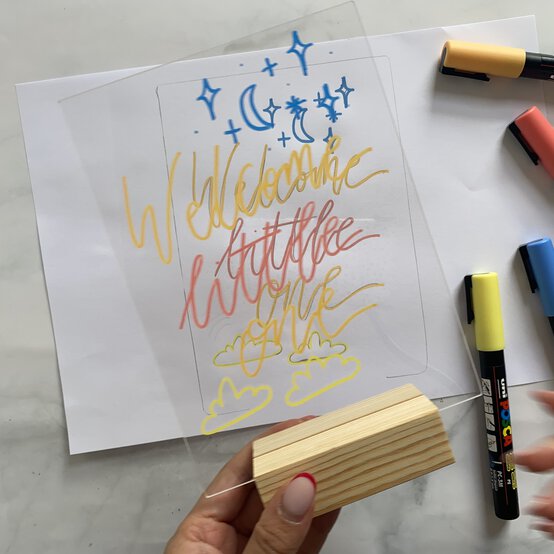 Welcome
little
one
uni
POSCA
PC-5M